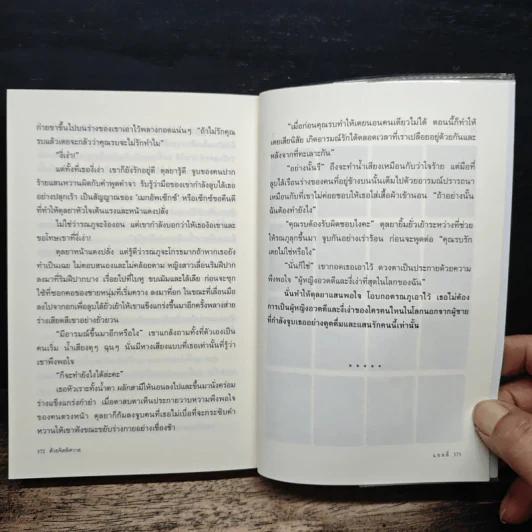 ก่ายขาขึ้นไปบนร่างของเขาเอาไว้พลางกอดแน่นๆ “ถ้าไม่รักคุณ
รบแล้วเตยจะกลัวว่าคุณรบจะไม่รักทำไม”
“งี่เง่า!”
แต่ทั้งที่เธองี่เง่า เขาก็ยังรักอยู่ดี ตุลยารู้ดี จูบของคนปาก
ร้ายแสนหวานผิดกับคำพูดคำจา รับรู้ว่ามือของเขากำลังลูบไล้เธอ
อย่างปลุกเร้า เป็นสัญญาณของ ‘เมกอัพเซ็กซ์’ หรือเซ็กซ์ขอคืนดี
ที่ทำให้ตุลยาหัวใจเต้นแรงและหน้าแดงปลั่ง
ไม่ใช่ว่ารณภูจะง้องอน แต่เขากำลังบอกว่าให้เธอง้อเขาและ
ขอโทษเขาที่งี่เง่า!
ตุลยาหน้าแดงปลั่ง แต่รู้ดีว่ารณภูจะโกรธมากถ้าหากเธอยัง
ทำเป็นเฉย ไม่ตอบสนองและไม่คล้อยตาม หญิงสาวเลื่อนริมฝีปาก
ลงมาที่ริมฝีปากบาง เรื่อยไปที่ใบหู ขบเม้มและไล้เลีย ก่อนจะซุก
ไซ้ที่ซอกคอของชายหนุ่มที่เริ่มคราง ลงมาที่อก ในขณะที่เลื่อนมือ
ลงไปจากอกเพื่อลูบไล้ยั่วเย้าให้เขาแข็งแกร่งขึ้นมาอีกครั้งพลางส่าย
ร่างเสียดสีเขาอย่างยั่วยวน
“มีอารมณ์ขึ้นมาอีกหรือไง” เขาแกล้งถามทั้งที่ตัวเองเป็น
คนเริ่ม น้ำเสียงดุๆ ฉุนๆ นั่นมีหางเสียงแบบที่เธอเท่านั้นที่รู้ว่า
เขาพึงพอใจ
“ก็จะทำยังไงได้ล่ะคะ”
เธอหัวเราะทั้งน้ำตา ผลักสามีให้นอนลงไปและขึ้นมานั่งคร่อม
ร่างแข็งแกร่งกำยำ เมื่อตาสบตาเห็นประกายวาบหวามพึงพอใจ
ของคนตรงหน้า ตุลยาก็ก้มลงจูบคนที่เธอไม่เบื่อที่จะกระซิบคำ
หวานให้เขาฟังขณะขยับร่างกายอย่างเชื่องช้า
372 ด้วยคิดพิศวาส
“เมื่อก่อนคุณรบทำให้เตยนอนคนเดียวไม่ได้ ตอนนี้ก็ทำให้
เตยเสียนิสัย เกิดอารมณ์รักได้ตลอดเวลาที่เราเปลือยอยู่ด้วยกันและ
หลังจากที่ทะเลาะกัน”
“อย่างนั้นรึ” ถึงจะทำน้ำเสียงเหมือนกับว่าใจร้าย แต่มือที่
ลูบไล้เรือนร่างของคนที่อยู่ข้างบนนั้นเต็มไปด้วยอารมณ์ปรารถนา
เหมือนกับที่เขาไม่ค่อยชอบให้เธอใส่เสื้อผ้าเข้านอน “ถ้าอย่างนั้น
ฉันต้องทำยังไง”
“คุณรบต้องรับผิดชอบไงคะ” ตุลยายิ้มยั่วเย้าระหว่างที่ช่วย
ให้รณภูลุกขึ้นมา จูบกันอย่างเร่าร้อน ก่อนจะพูดต่อ “คุณรบรัก
เตยไม่ใช่หรือไง”
“นั่นก็ใช่” เขากอดเธอเอาไว้ ดวงตาเป็นประกายด้วยความ
พึงพอใจ “ผู้หญิงอวดดีและงี่เง่าที่สุดในโลกของฉัน”
นั่นทำให้ตุลยาแสนพอใจ โอบกอดรณภูเอาไว้ เธอไม่ต้อง
การเป็นผู้หญิงอวดดีและงี่เง่าของใครคนไหนในโลกนอกจากผู้ชาย
ที่กำลังจูบเธออย่างดูดดื่มและแสนรักคนนี้เท่านั้น
• • • • •
373